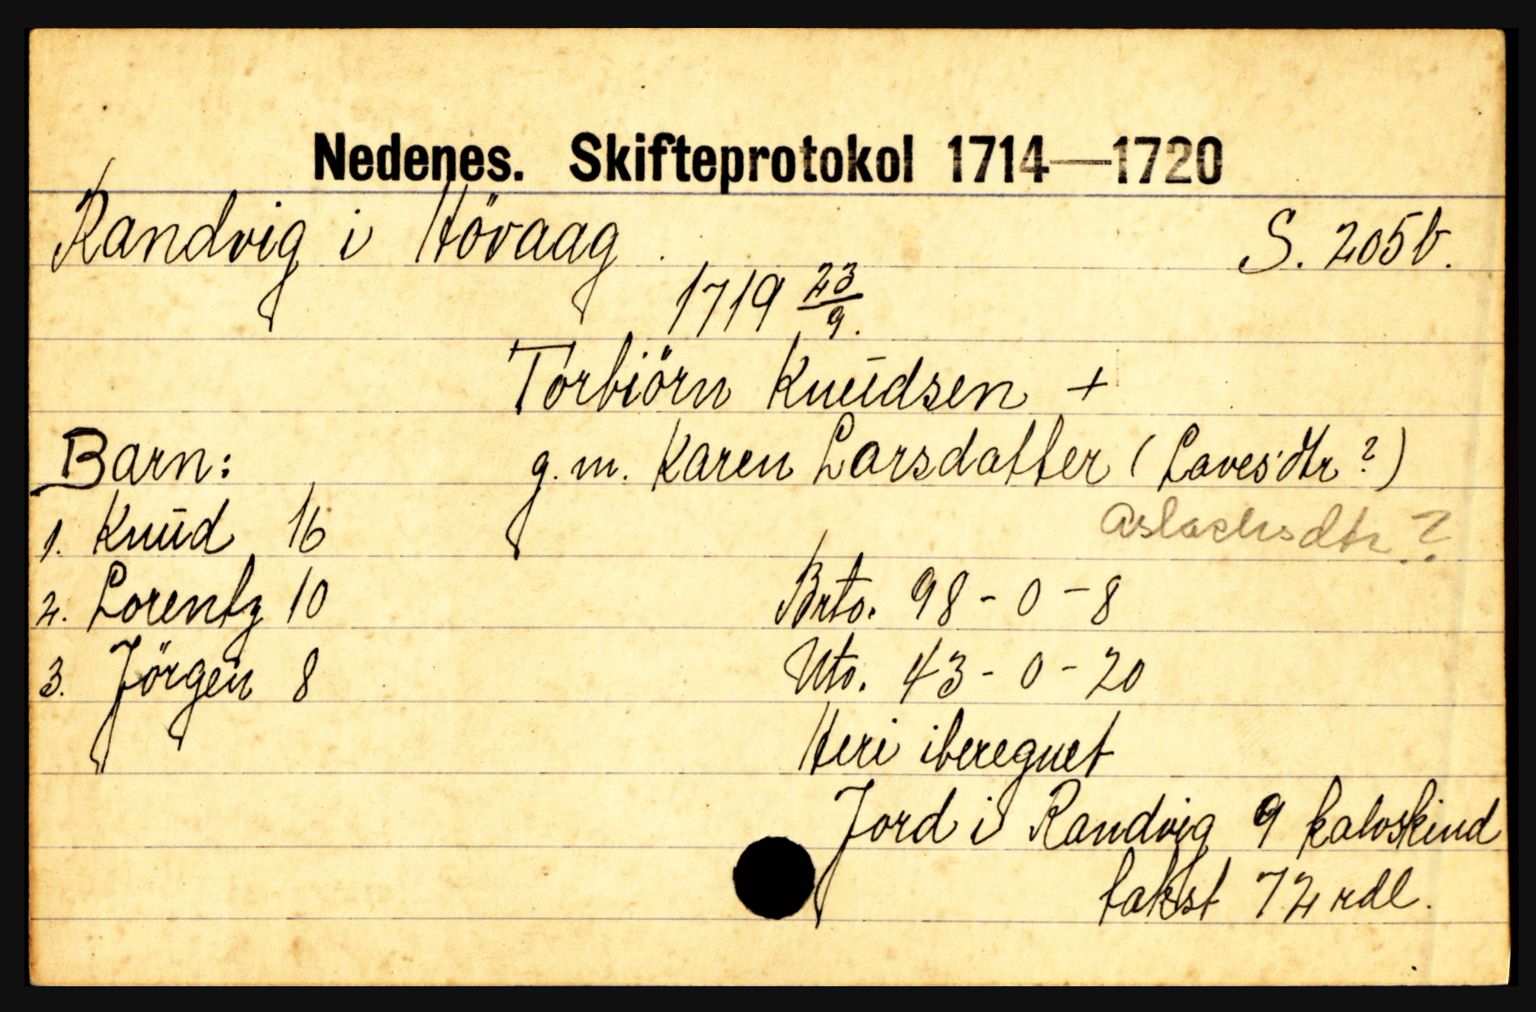 Nedenes. Skifteprotokol 1714—1720
Randvig i Hövaag. S. 205b.
1719 23/9.
Torbiörn Knŭdsen +
Barn: g. m. Karen Larsdatter (Lavesdtr?)
1. Knŭd 16 Aslachsdtr?
2. Lorentz 10 Brto. 98 - 0 - 8
3. Jörgen 8 Nto. 43 - 0 - 20
Heri iberegnet
Jord i Randvig 9 kalvskind
takst 72 rdl.